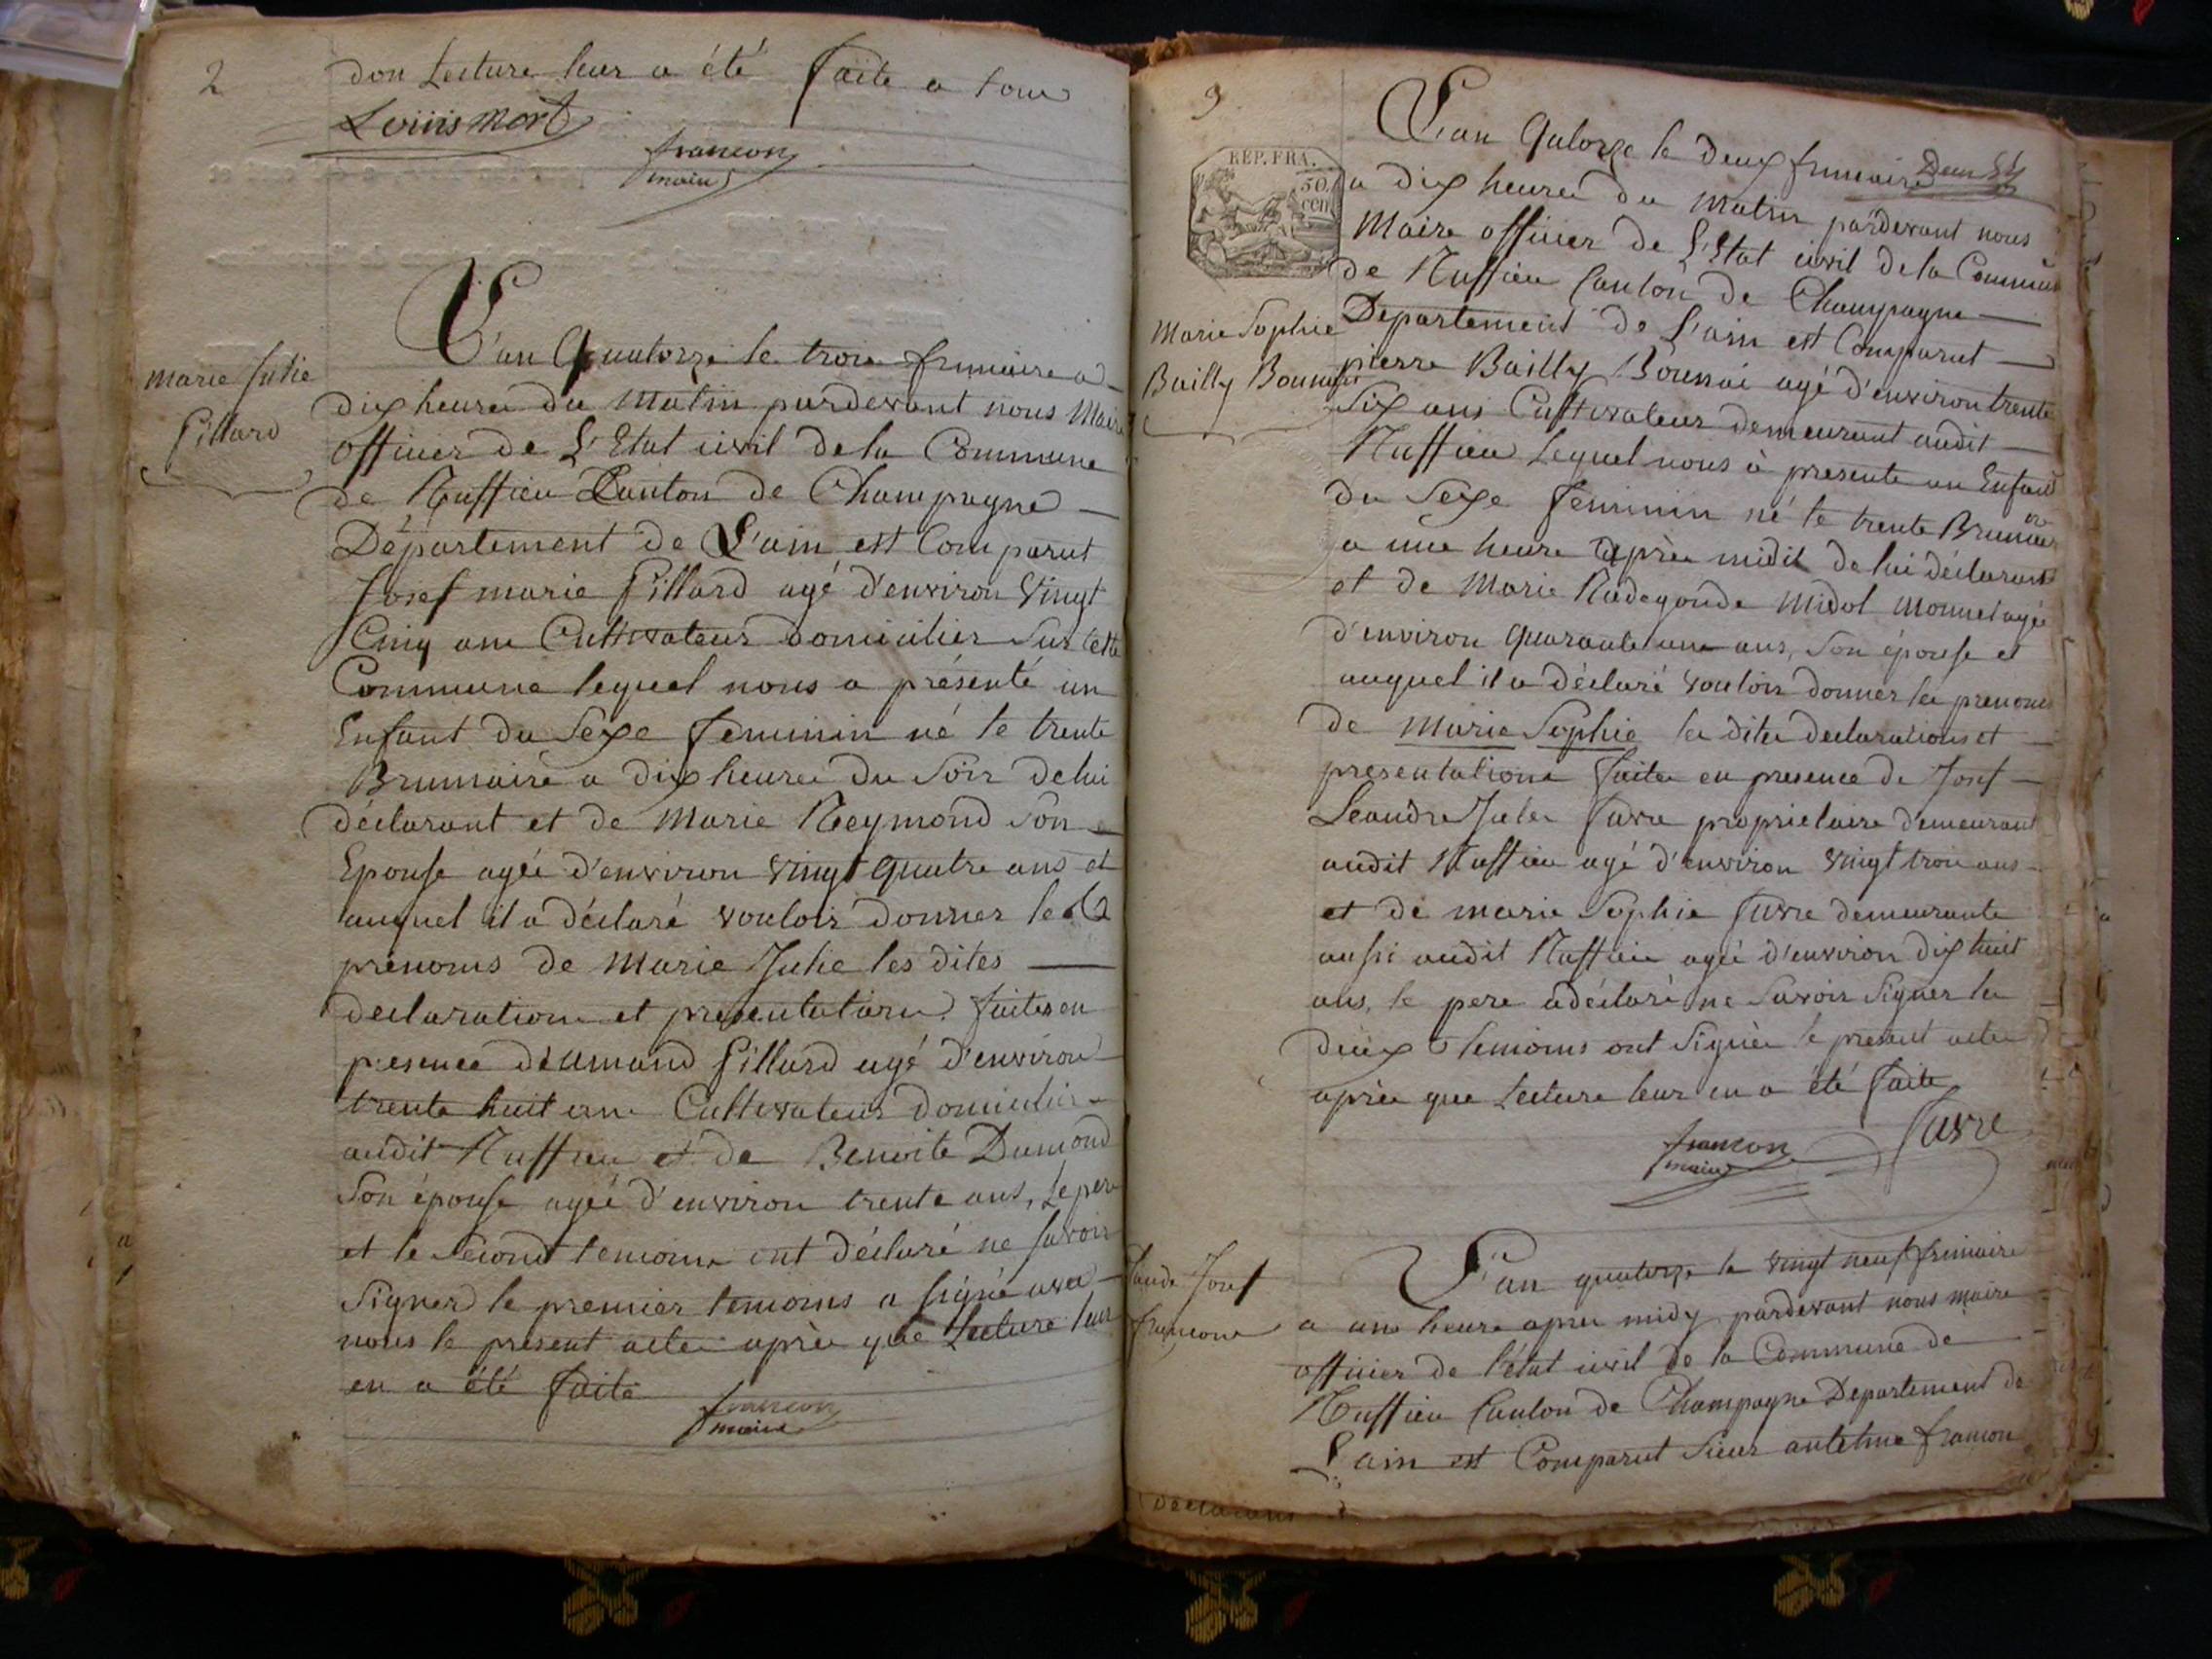 2
don Lecture leur a été faite a tous
Louis Mort
francon
maire
marie Julie
Pillard
L'an Quatorze le trois frimaire a
dix heures du matin pardevant nous Maire
officier de L'Etat civil de la Commune
de Ruffieu Canton de Champagne
Département de L'ain est Comparut
Josef marie Pillard agé d'environ vingt
Cinq ans Cultivateur domicilier Sur cette
Commune lequel nous a présenté un
Enfant du Sexe feminin né le trente
Brumaire a dix heures du Soir de lui
déclarant et de Marie Reymond Son
Epouse agée d'environ vingt quatre ans et
auquel il a déclaré vouloir donner les
prénoms de Marie Julie les dites
declarations et presentations faites en
presence d'aumand Pillard agé d'environ
trente huit ans Cultivateur domicilier
audit Ruffieu et de Benoite Dumond
Son épouse agée d'environ trente ans, Le pere
et le Second temoins ont déclaré ne savoir
Signer le premier temoins a signé avec
nous le présent acte après que Lecture leur
en a été faite
francon
maire
3
REP. FRA.
50
cen
L'an Quatorze le deux frimaire
a dix heures du matin pardevant nous
Maire officier de L'Etat civil de la Commune
de Ruffieu Canton de Champagne
Marie Sophie
Bailly
Département de L'ain est Comparut
pierre Bailly agé d'environ trente
Six ans Cultivateur demeurant audit
Ruffieu Lequel nous à presente un Enfant
du Sexe feminin né le trente Brumaire
a une heure après midit de lui déclarant
et de Marie Radegonde Midol Monnet agée
d'environ quarante une ans, Son épouse et
auquel il a déclaré vouloir donner les prenoms
de Marie Sophie les dites declarations et
presentations faites en presence de Josef
Leandre Jules Favre proprietaire demeurant
audit Ruffieu agé d'environ vingt trois ans
et de marie Sophie Favre demeurante
aussi audit Ruffieu agée d'environ dix huit
ans, le pere a déclaré ne Savoir Signer les
deux temoins ont Signée le present acte
après que Lecture leur en a été faite
francon
maire
Favre
Josef
francon
L'an quatorze le vingt neuf frimaire
a une heure apres midy pardevant nous maire
officier de l'état civil de la Commune de
Ruffieu Canton de Champagne Departement de
L'ain est Comparut Sieur antelme francon